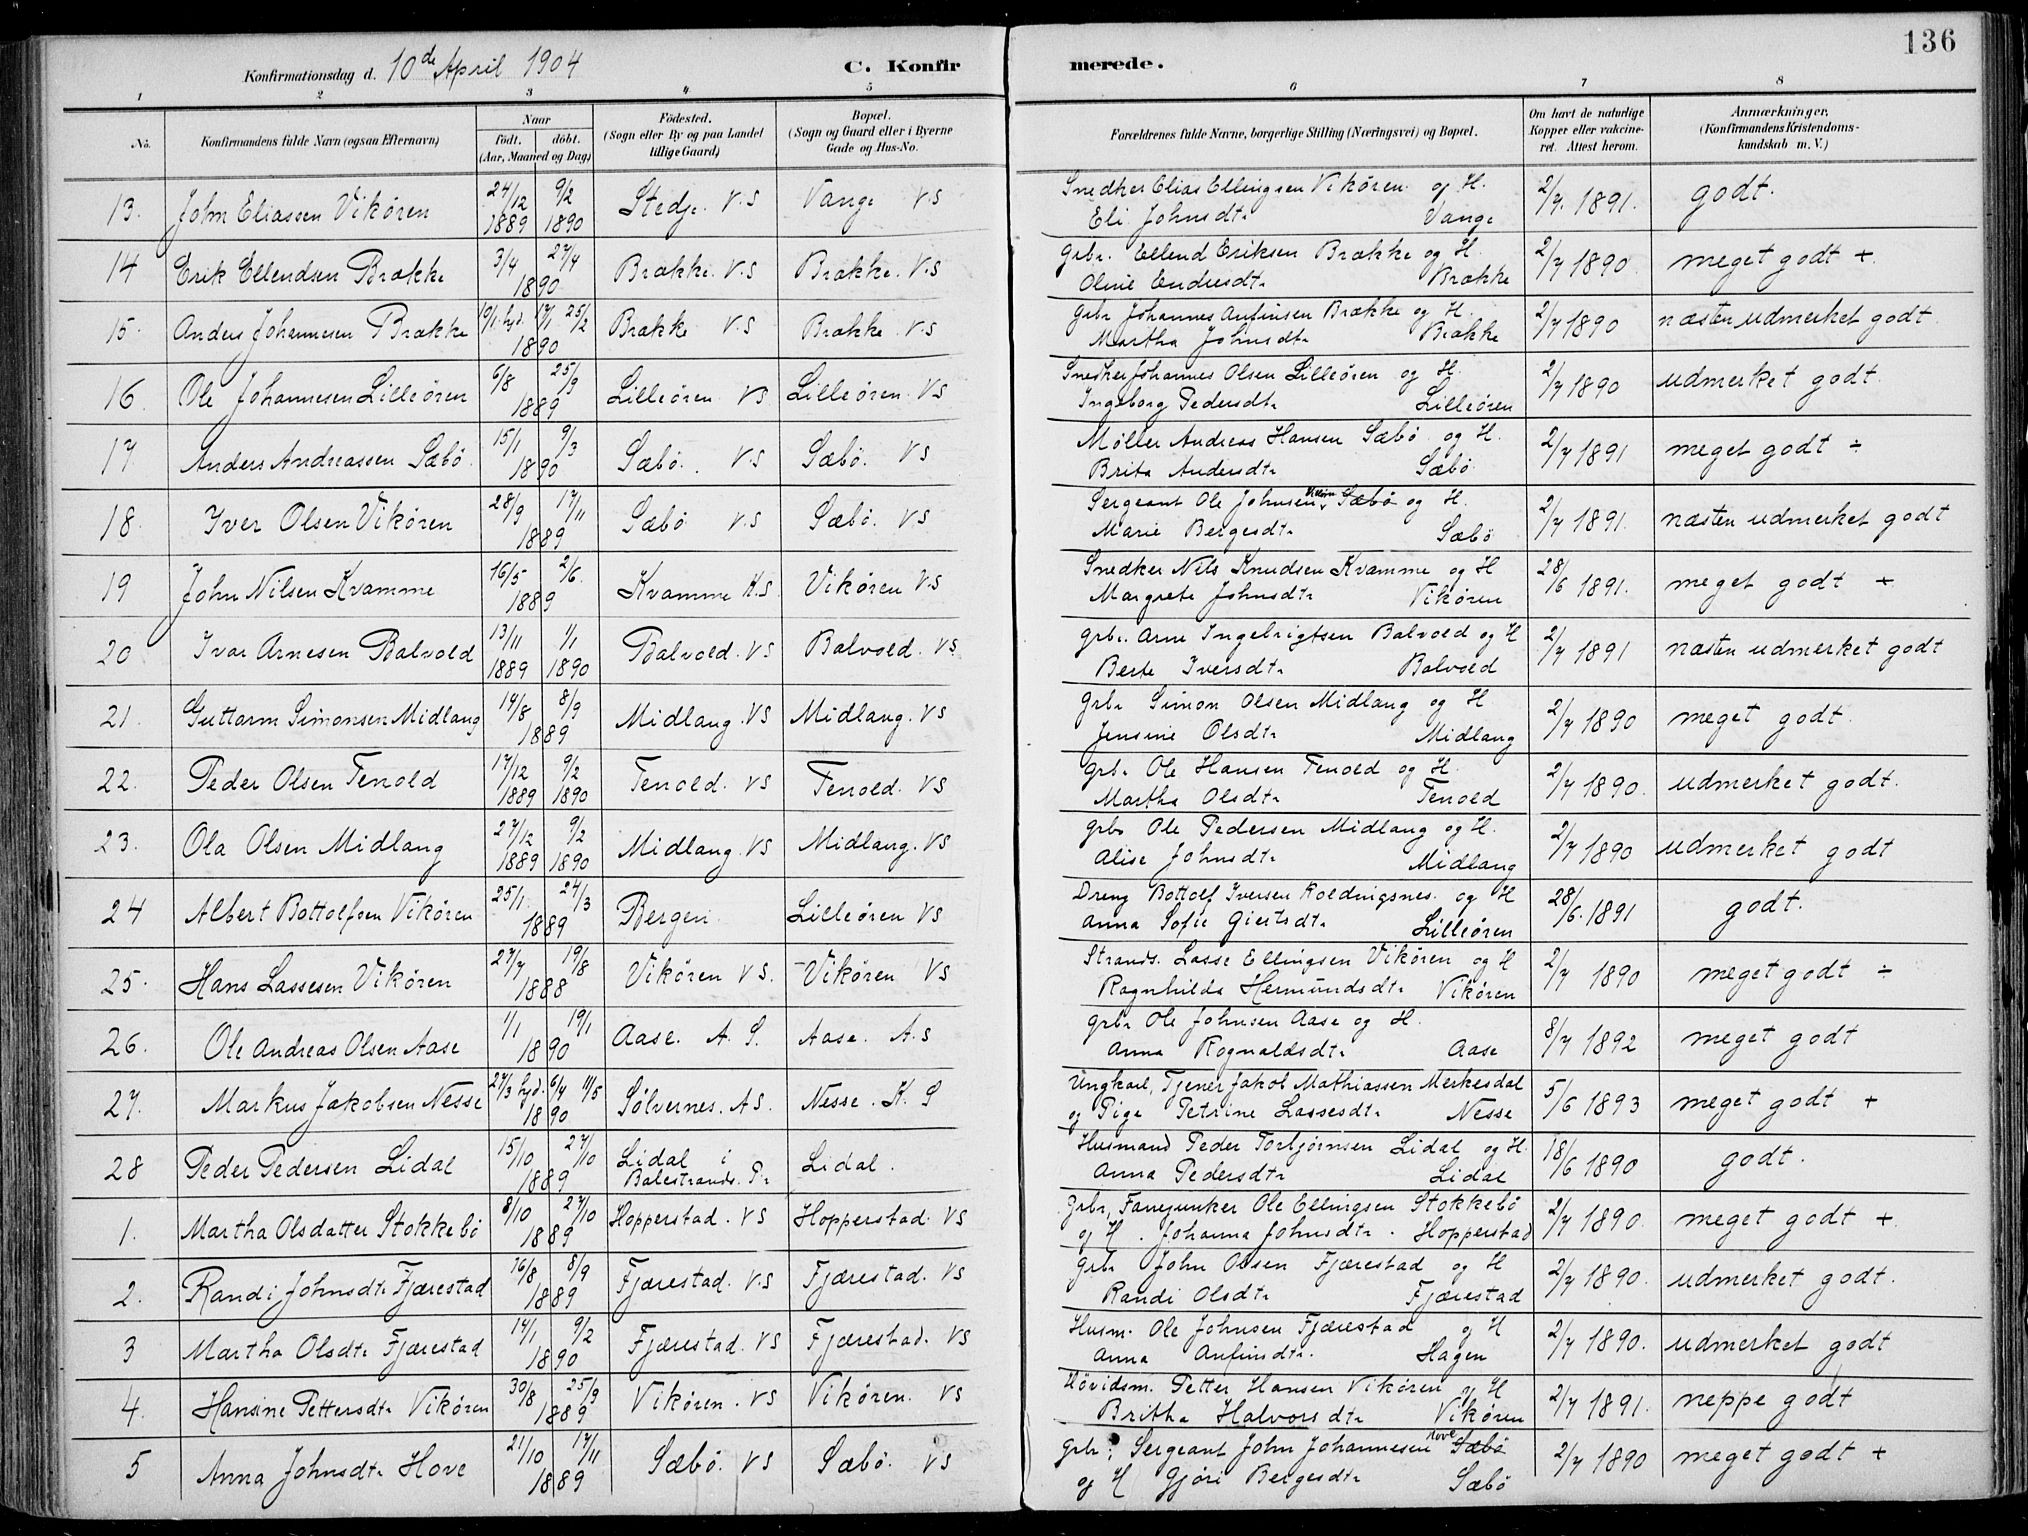 136
Konfirmationsdag d. 10de April 1904
C. Konfir merede.
1 2 3 4 5 6 7 8
No. Konfirmandens fulde Navn (ogsaa Efternavn) Naar födt. döbt. (Aar, Maaned og Dag) Födested. (Sogn eller By og paa Landet tillige Gaard) Bopæl. (Sogn og Gaard eller i Byerne Gade og Hus-No. Forældrenes fulde Navne, borgerlige Stilling (Næringsvei) og Bopæl. Om havt de naturlige Kopper eller vakcineret. Attest herom. Anmærkninger. (Konfirmandens Kristendomskundskab m. V.)
13. John Eliassen Vikören 24/12 1889 9/2 1890 Stedje. V.S Vange V S Snedker Elias Ellingsen Vikören. og H. 2/7. 1891. godt.
Eli Johnsdtr Vange
14 Erik Ellendsen Brække 3/4 27/4 1890 Brække. V.S Brække. V.S Grbr. Ellend Eriksen Brække og H. 2/7 1890. meget godt +.
Oline Endresdtr Brække
15. Anders Johannesen Brække 10/1. hjd. 17/1 25/2 1890 Brække V S Brække. V.S Grbr Johannes Anfinsen Brække og H. 2/7 1890 næsten udmerket godt.
Martha Johnsdtr Brække
16. Ole Johannesen Lilleören 6/8 25/9 1889 Lilleören. VS Lilleören. VS Snedker Johannes Olsen Lilleören og H. 2/7 1890 udmerket godt.
Ingeborg Pedersdtr Lilleören
17 Anders Andreassen Sæbö. 15/1 9/3 1890 Sæbö. VS Sæbö. VS Möller Andreas Hansen Sæbö og H. 2/7 1891 meget godt ÷
Brita Andersdtr Sæbö
18. Iver Olsen Vikören 28/9 17/11 1889 Sæbö VS Sæbö. VS Sergeant Ole Johnsen Vikören Sæbö og H. 2/7 1891. næsten udmerket godt
Marie Bergesdtr Sæbö
19 John Nilsen Kvamme 16/5 2/6. 1889 Kvamme K.S Vikören V.S Snedker Nels Knudsen Kvamme og H 28/6 1891. meget godt +
Margrete Johnsdtr Vikören
20 Ivar Arnesen Balvold 13/11 1889 1/1 1890 Balvold. VS Balvold. VS Grbr. Arne Ingebrigtsen Balvold og H 2/7 1891 næsten udmerket godt
Berte Iversdtr Balvold
21. Guttorm Simonsen Midlang 14/8 8/9 1889 Midlang. VS Midlang. VS Grbr Simon Olsen Midlang og H 2/7 1890 meget godt.
Jensine Olsdtr Midlang
22. Peder Olsen Tenold 17/12 1889 9/2 1890 Tenold. VS Tenold. VS Grbr Ole Hansen Tenold og H. 2/7 1890. udmerket godt.
Martha Olsdtr Tenold
23. Ola Olsen Midlang 27/12 1889 9/2 1890 Midlang. VS Midlang. VS Grbr Ole Pedersen Midlang og H. 2/7 1890 udmerket godt
Alise Johnsdtr Midlang
24 Albert Bottolfsen Vikören 25/1. 24/3 1889 Bergen. Lilleören VS Dreng Bottolf Iversen Holdningsnes. og H 28/6. 1891 godt.
Anna Sofie Giertsdtr Lilleören
25. Hans Lassesen Vikören 27/7 19/8 1888 Vikören VS. Vikören VS Strands. Lasse Ellingsen Vikören og H 2/7 1890 meget godt ÷
Ragnhilda Hermundsdtr Vikören
26. Ole Andreas Olsen Aase 1/1 19/1 1890 Aase. A. S. Aase. A.S Grbr Ole Johnsen Aase og H. 8/7 1892 meget godt
Anna Rognaldsdtr Aase
27. Markus Jakobsen Nesse 27/3 hjd. 6/4 11/5 1890 Sølvernes. A S. Nesse. K. S Ungkarl, Tjener Jakob Mathiassen Merkesdal 5/6 1893 meget godt +
og Pige Petrine Lassesdtr Nesse
28 Peder Pedersen Lidal 15/10 27/10 1889 Lidal i Balestrands. Pr Lidal. Husmand Peder Torbjørnsen Lidal og H. 18/6 1890 godt.
Anna Pedersdtr Lidal
1. Martha Olsdatter Stokkebö 8/10 27/10 1889 Hopperstad. VS Hopperstad. VS Grbr, Fanejunker Ole Ellingsen Stokkebö 2/7 1890. meget godt +.
og H. Johanna Johnsdtr. Hopperstad
2. Randi Johnsdtr Fjærestad 16/8 8/9 1889 Fjærestad. V.S Fjærestad. VS Grbr John Olsen Fjærestad og H 2/7 1890. udmerket godt.
Randi Olsdtr Fjærestad
3 Martha Olsdtr Fjærestad 14/1 9/2 1890 Fjærestad. VS Fjærestad. VS Husm. Ole Johnsen Fjærestad og H 2/7 1890. udmerket godt
Anna Anfinsdtr. Hagen
4. Hansine Pettersdtr Vikören 30/8 25/9 1889 Vikören. VS Vikören. VS Hövidsm. Petter Hansen Vikören og H 2/7 1891. neppe godt
Britha Halvorsdtr Vikören
5 Anna Johnsdtr Hove 21/10 17/11 1889 Sæbö. VS Sæbö. VS Grbr. Sergeant John Johannesen Hove Sæbö 2/7 1890 meget godt +
og H Gjöri Bergesdtr Sæbö